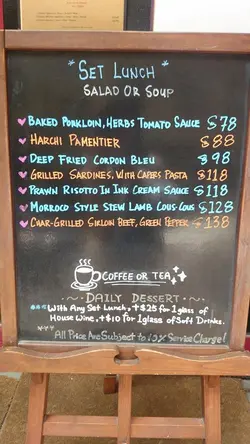 Set Lunch
Salad Or Soup
Baked Porkloin, Herbs Tomato Sauce $78
Harchi Pamentier $88
Deep Fried Cordon Bleu $98
Grilled Sardines, With Capers Pasta $118
Prawn Risotto In Ink Cream Sauce $118
Morroco Style Stew Lamb Cous-Cous $128
Char-Grilled Sirloin Beef, Green Pepper $138
Coffee or Tea
Daily Dessert
With Any Set Lunch, +$25 for 1 glass of
House Wine, +$10 for 1 glass of Soft Drinks.
All Price Are Subject to 10% Service Charge!